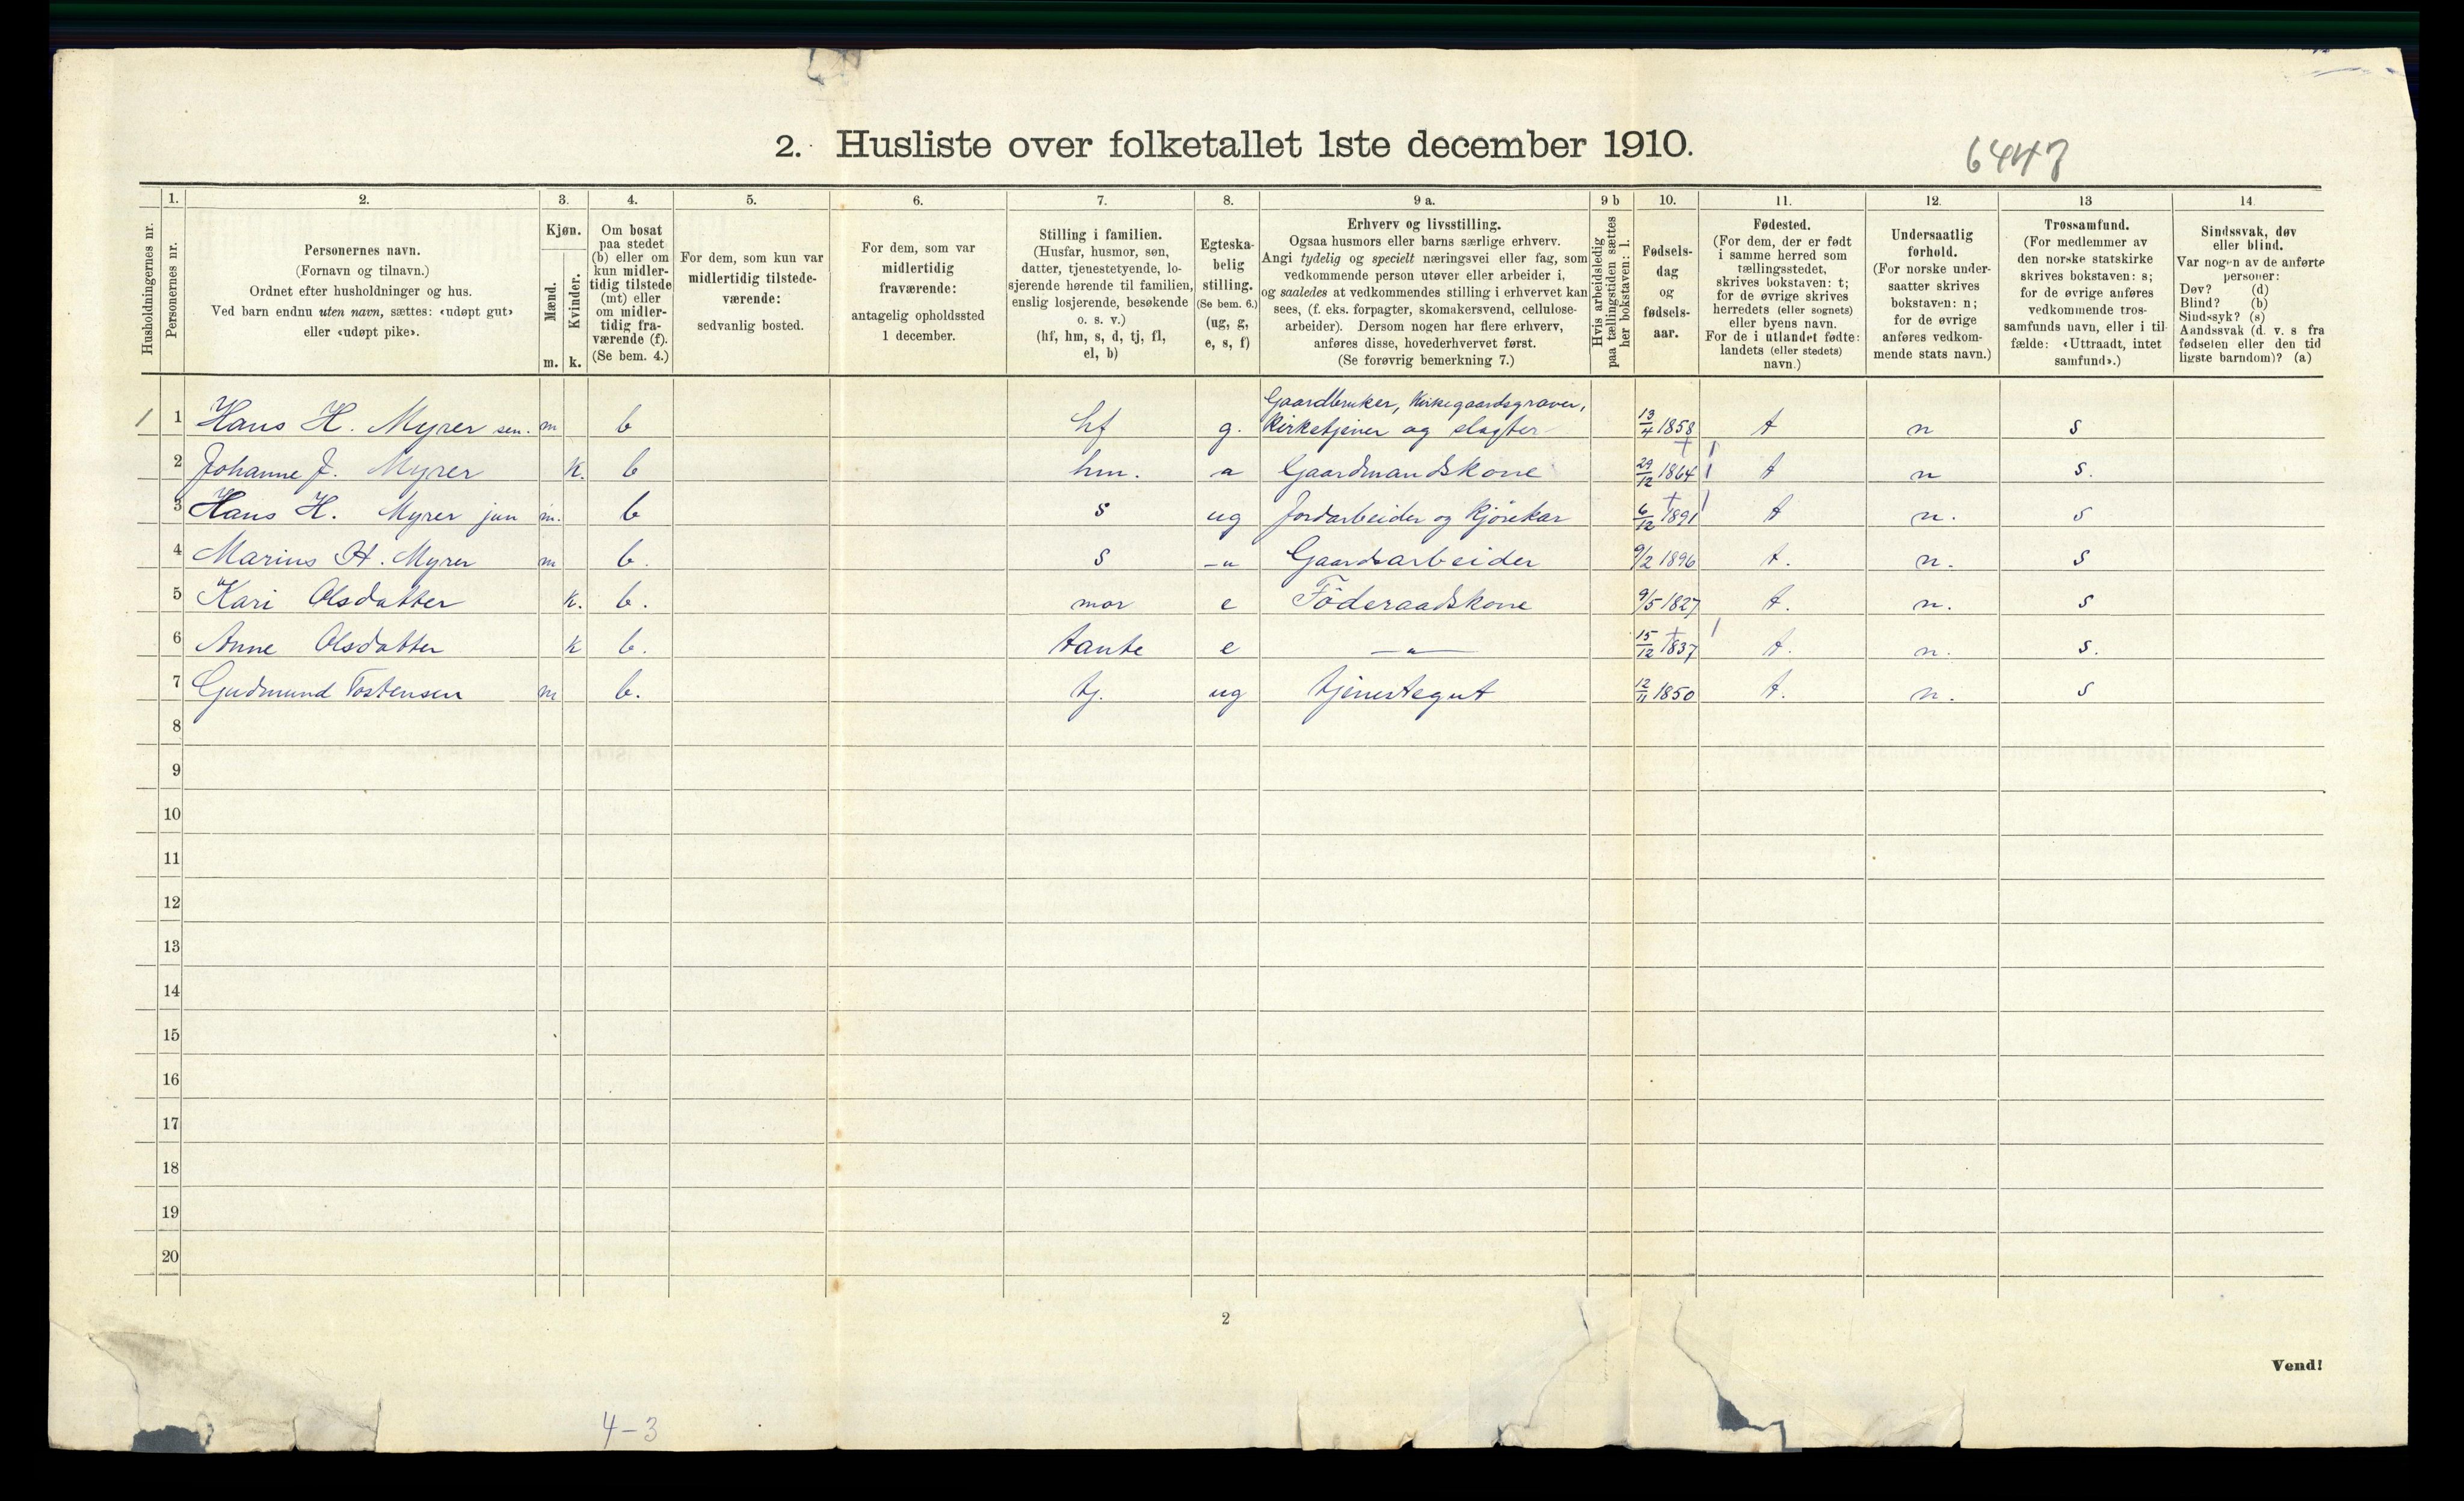 2. Husliste over folketallet 1ste december 1910.
6447
1. 2. 3. 4. 5. 6. 7. 8. 9 a. 9 b 10. 11. 12. 13 14
Husholdningernes nr.
Personernes nr.
Personernes navn.
(Fornavn og tilnavn.)
Ordnet efter husholdninger og hus.
Ved barn endnu uten navn, sættes: «udøpt gut»
eller «udøpt pike».
Kjøn.
Mænd.
Kvinder.
m. k.
Om bosat
paa stedet
(b) eller om
kun midler-
tidig tilstede
(mt) eller
om midler-
tidig fra-
værende (f).
(Se bem. 4.)
For dem, som kun var
midlertidig tilstede-
værende:
sedvanlig bosted.
For dem, som var
midlertidig
fraværende:
antagelig opholdssted
1 december.
Stilling i familien.
(Husfar, husmor, søn,
datter, tjenestetyende, lo-
sjerende hørende til familien,
enslig losjerende, besøkende
o. s. v.)
(hf, hm, s, d, tj, fl,
el, b)
Egteska-
belig
stilling.
(Se bem. 6.)
(ug, g,
e, s, f)
Erhverv og livsstilling.
Ogsaa husmors eller barns særlige erhverv.
Angi tydelig og specielt næringsvei eller fag, som
vedkommende person utøver eller arbeider i,
og saaledes at vedkommendes stilling i erhvervet kan
sees, (f. eks. forpagter, skomakersvend, cellulose-
arbeider). Dersom nogen har flere erhverv,
anføres disse, hovederhvervet først.
(Se forøvrig bemerkning 7.)
Hvis arbeidsledig
paa tællingstiden sættes
her bokstaven: l.
Fødsels-
dag
og
fødsels-
aar.
Fødested.
(For dem, der er født
i samme herred som
tællingsstedet,
skrives bokstaven: t;
for de øvrige skrives
herredets (eller sognets)
eller byens navn.
For de i utlandet fødte:
landets (eller stedets)
navn.)
Undersaatlig
forhold.
(For norske under-
saatter skrives
bokstaven: n;
for de øvrige
anføres vedkom-
mende stats navn.)
Trossamfund.
(For medlemmer av
den norske statskirke
skrives bokstaven: s;
for de øvrige anføres
vedkommende tros-
samfunds navn, eller i til-
fælde: «Uttraadt, intet
samfund».)
Sindssvak, døv
eller blind.
Var nogen av de anførte
personer:
Døv? (d)
Blind? (b)
Sindssyk? (s)
Aandssvak (d. v. s. fra
fødselen eller den tid
ligste barndom)? (a)
Gaardbruker, Kirkegaardsgraver,
1 1 Hans H. Myrer sen. m b hf g. Kirketjener og slagter 13/4 1858 t n s
2 Johanne J. Myrer k. b hm. " Gaardmandskone 29/12 1864 t n s.
3 Hans H. Myrer jun m. b s ug Jordarbeider og Kjørekar 6/12 1891 t n. s
4 Marius H. Myrer m b. s -"- Gaardsarbeider 9/2 1896 t. n. s
5 Kari Olsdatter k. b. mor e Föderaadskone 9/5 1827 t. n. s
6 Anne Olsdatter k b. tante e -"- 15/12 1837 t. n. s.
7 Gudmund Tostensen m b. tj. ug tjenestegut 12/11 1850 t. n. s
8
9
10
11
12
13
14
15
16
17
18
19
20
2
Vend!
4-3